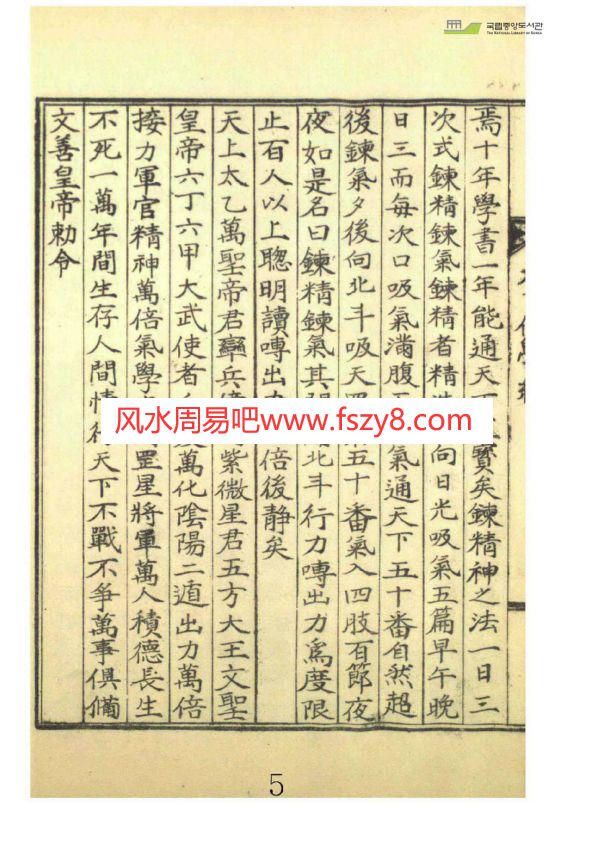 국립중앙도서관
THE NATIONAL LIBRARY OF KOREA
焉十年學書一年能通天下寶矣鍊精神之法一日三
次式鍊精鍊氣鍊精者精向日光吸氣五篇早午晚
日三而每次口吸氣滿腹五氣通天下五十番自然超
後鍊氣夕後向北斗吸天五十番氣入四肢百節夜
夜如是名曰鍊精鍊氣其北斗行力出力爲度限
止百人以上聰明讀出力倍後靜矣
天上太乙萬聖帝君兵紫微星君五方大王文聖
皇帝六丁六甲大武使者萬化陰陽二遁出力萬倍
接力軍官精神萬倍氣學罡星將軍萬人積德長生
不死一萬年間生存人間情天下不戰不爭萬事俱備
文善皇帝勅令
风水周易吧www.fszy8.com
5